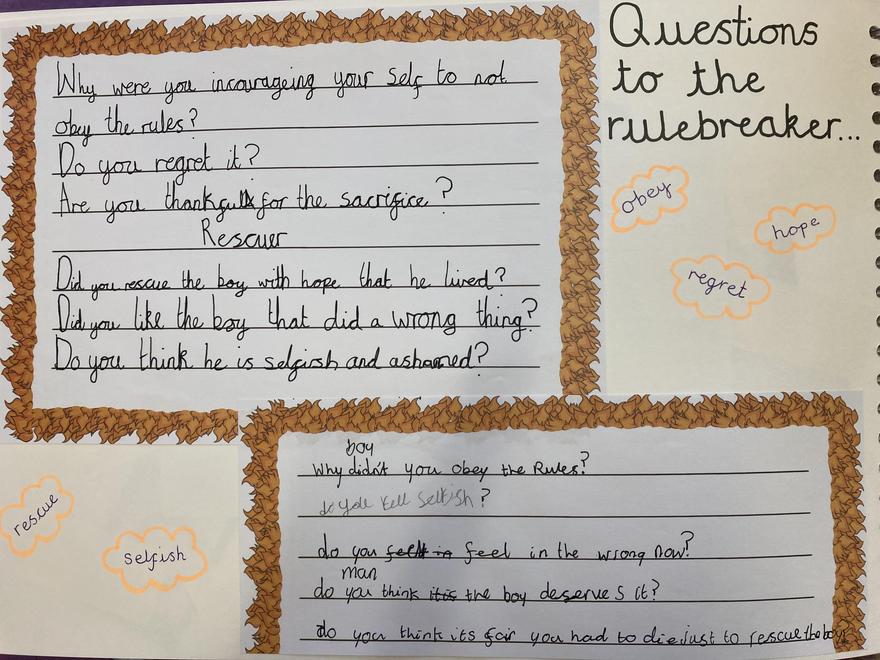 Questions
to the
rulebreaker...
Why were you incourageing your self to not
obey the rules?
Do you regret it?
Are you thankfull for the sacrifice?
Rescuer
Did you rescue the boy with hope that he lived?
Did you like the boy that did a wrong thing?
Do you think he is selfish and ashamed?
obey
hope
regret
boy
Why didn't you obey the Rules?
do you feel selfish?
do you feel in the wrong now?
man
do you think the boy deserves it?
do you think its fair you had to die just to rescue the boy
rescue
selfish